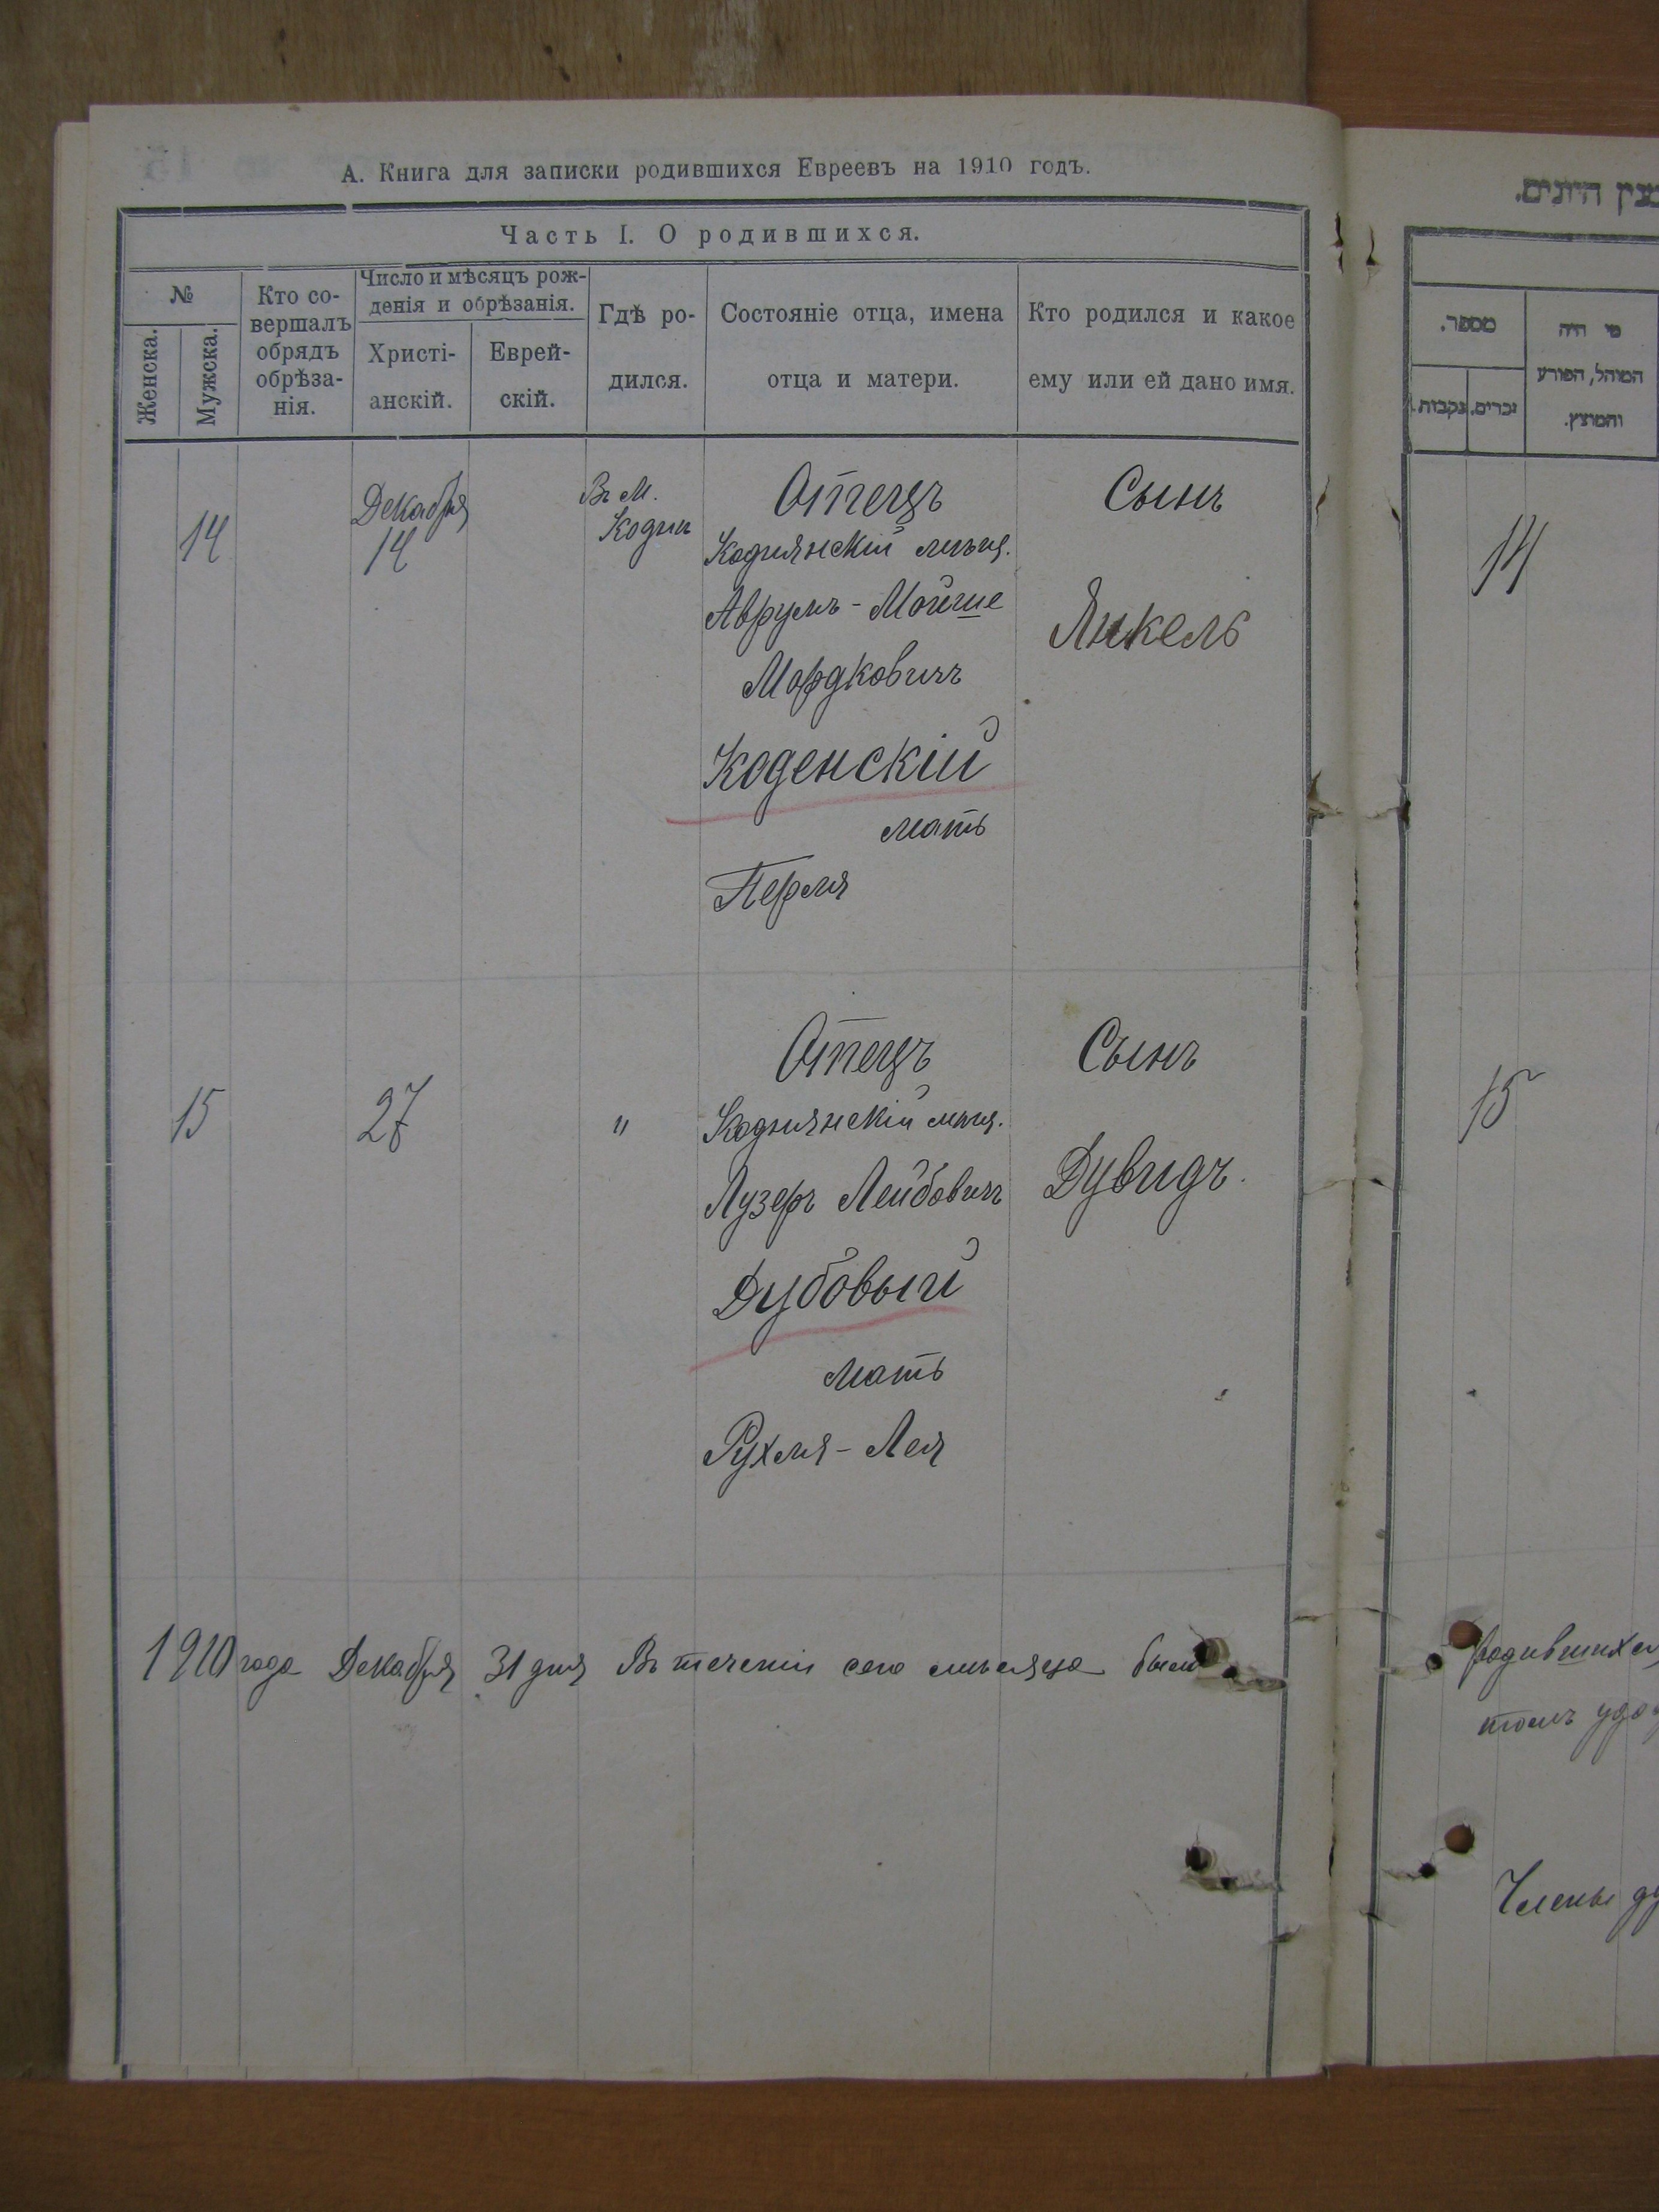 А. Книга для записки родившихся Евреевъ на 1910 годъ.
Часть I. О родившихся.
№
Женска.
Мужска.
Кто со-
вершалъ
обрядъ
обрѣза-
нія.
Число и мѣсяцъ рож-
денія и обрѣзанія.
Христі-
анскій.
Еврей-
скій.
Гдѣ ро-
дился.
Состояніе отца, имена
отца и матери.
Кто родился и какое
ему или ей дано имя.
14
Декабря
14
Въ М.
Отецъ
Коднянскій мѣщ.
Аврумъ-Мойше
Мордковичъ
Коденскій
мать
Перля
Сынъ
Янкель
15
27
"
Отецъ
Коднянскій мѣщ.
Лузеръ Лейбовичъ
Дубовый
мать
Рухля-Лея
Сынъ
Дувидъ.
1910 года Декабря 31 дня Въ теченіи сего мѣсяца были
מספר.
נקבות.
זכרים.
מי היה
המוהל, הפורע
והמוצץ.
14
15
родившихся
томъ
Члены